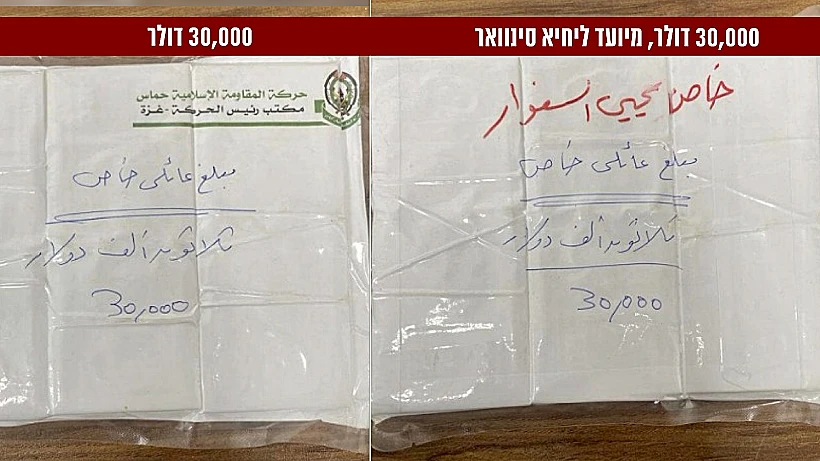 30,000 דולר
حركة المقاومة الإسلامية حماس
مكتب رئيس الحركة - غزة
مبلغ عائلي خاص
ثلاثون ألف دولار
30,000
30,000 דולר, מיועד ליחיא סינוואר
خاص يحيى السنوار
مبلغ عائلي خاص
ثلاثون ألف دولار
30,000